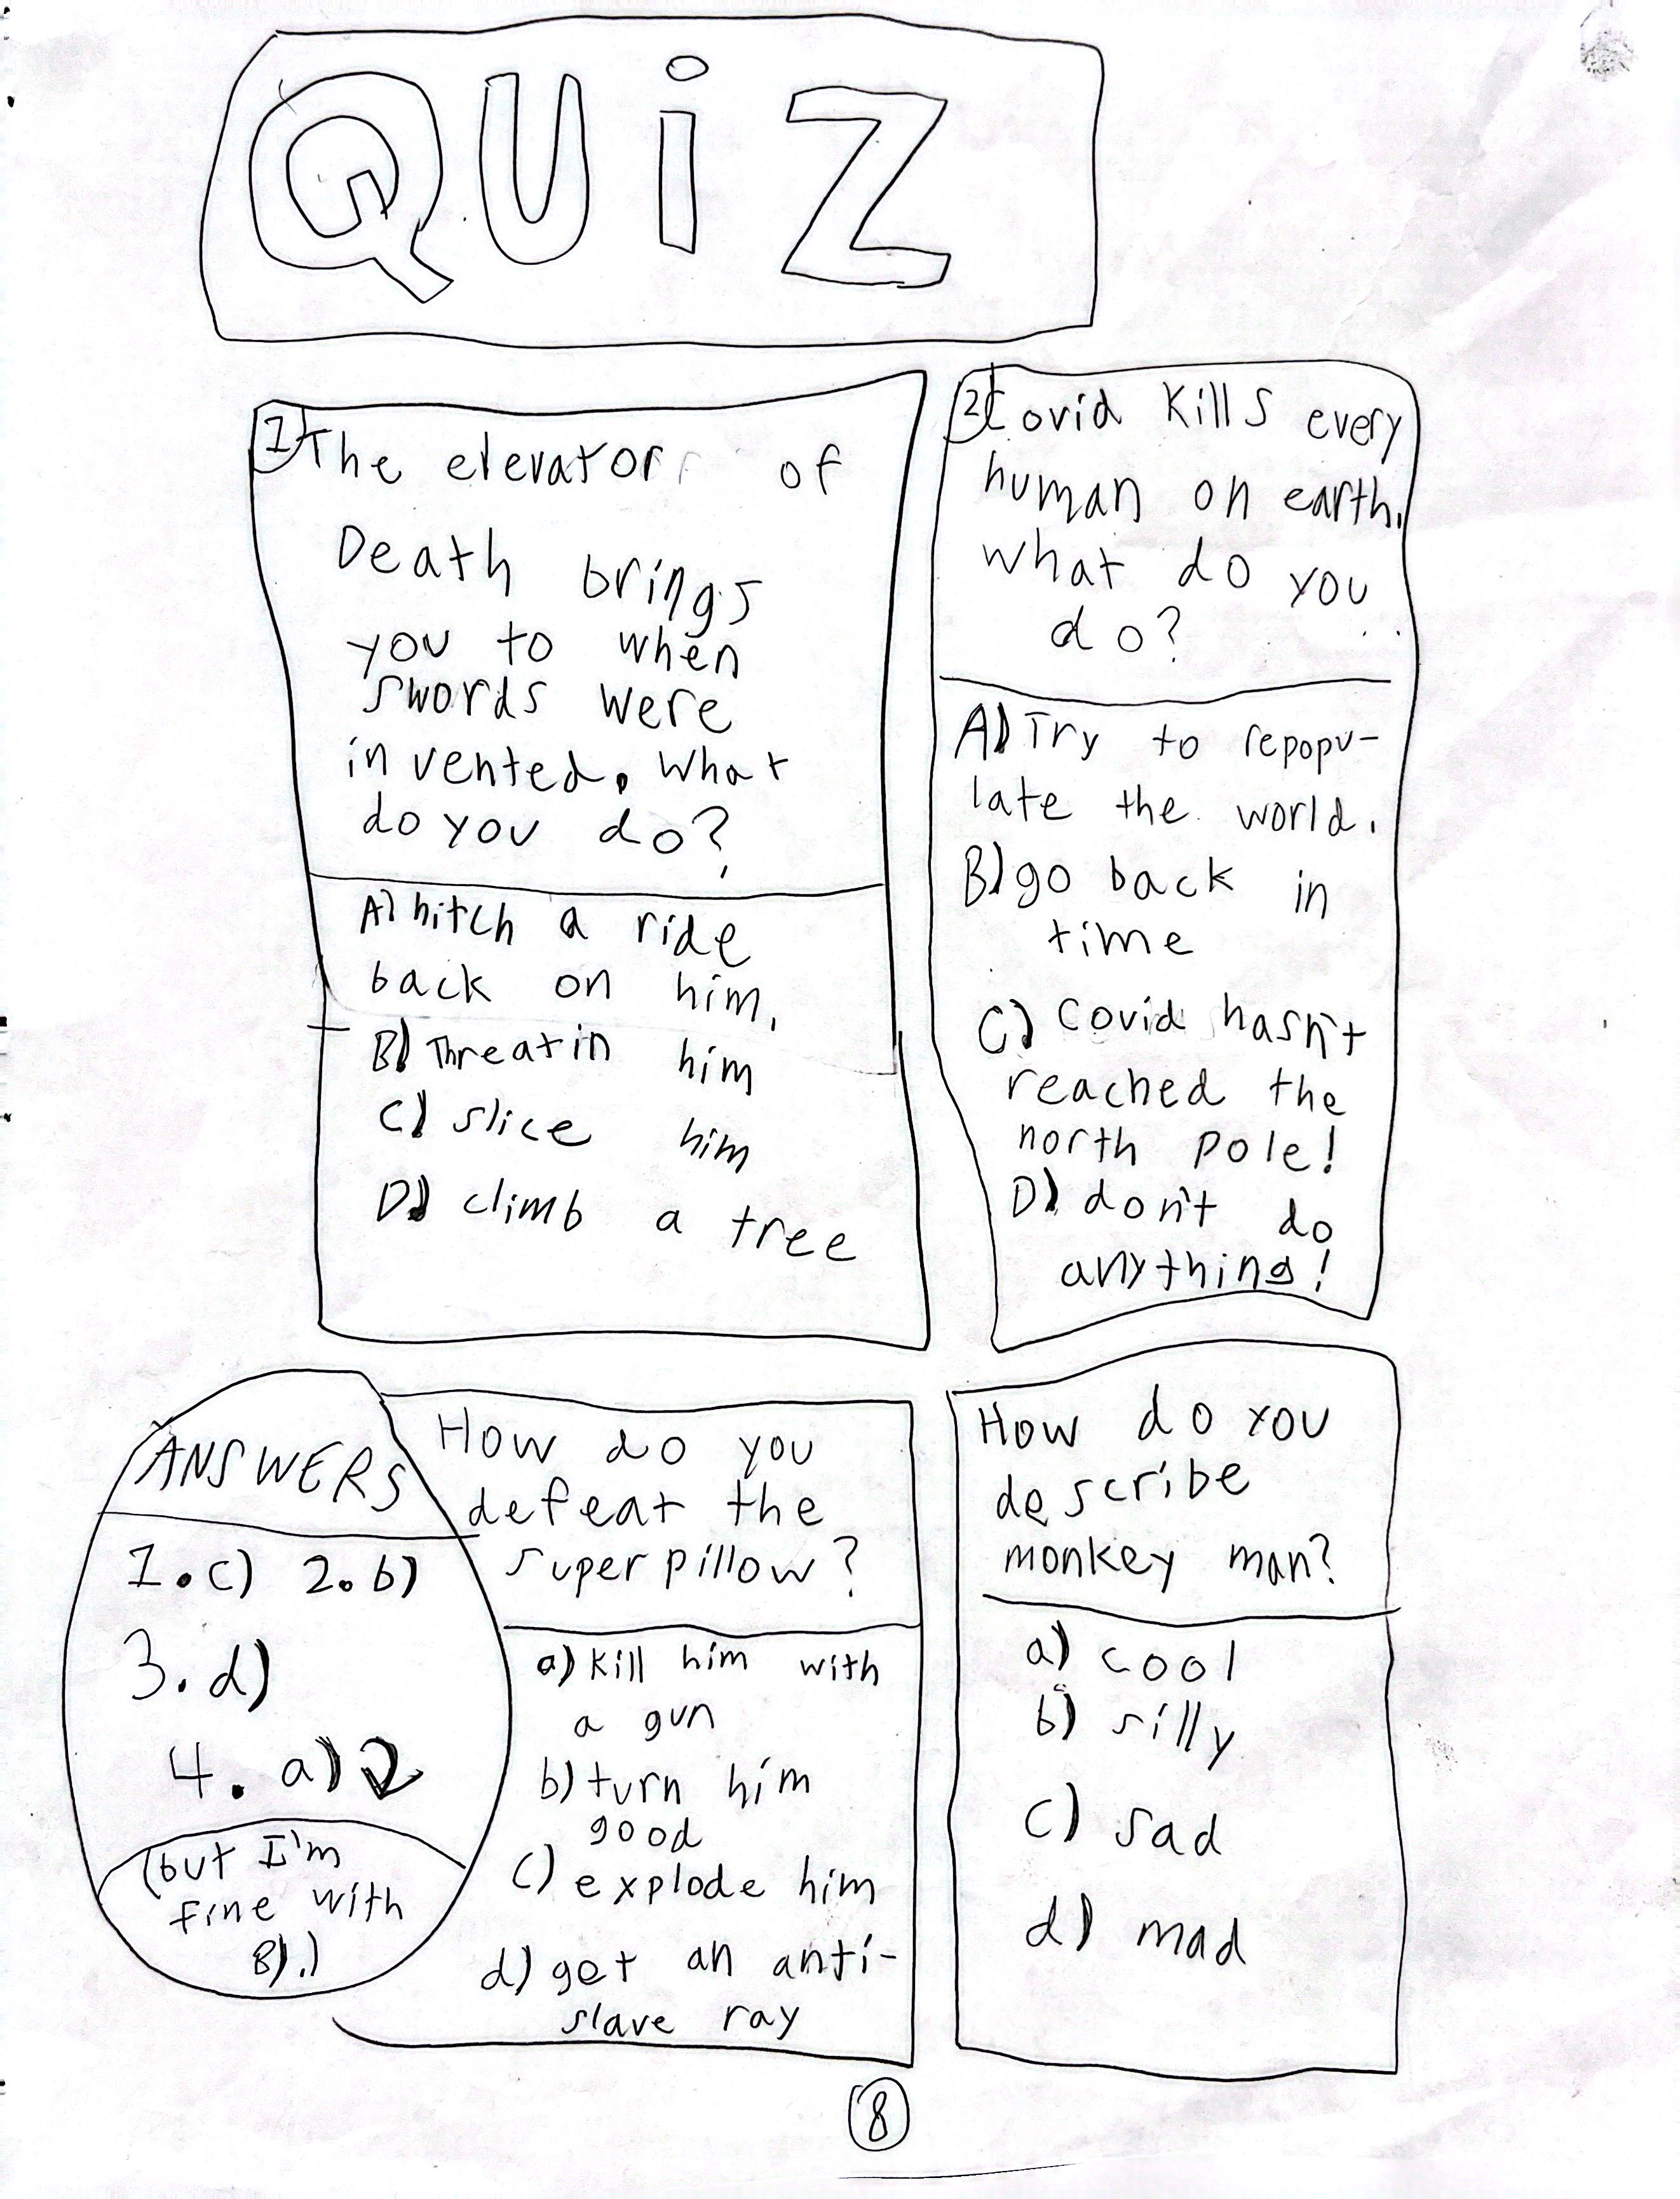 QUiZ
1 The elevator of
Death brings
you to when
swords were
invented. What
do you do?
A) hitch a ride
back on him.
B) Threatin him
C) slice him
D) climb a tree
2 Covid kills every
human on earth.
what do you
do?
A) Try to repopu-
late the world.
B) go back in
time
C) Covid hasn't
reached the
north pole!
D) don't do
anything!
ANSWERS
1. c) 2. b)
3. d)
4. a)
(but I'm
fine with
B).)
How do you
defeat the
super pillow?
a) kill him with
a gun
b) turn him
good
C) explode him
d) get an anti-
slave ray
How do you
describe
monkey man?
a) cool
b) silly
C) sad
d) mad
8